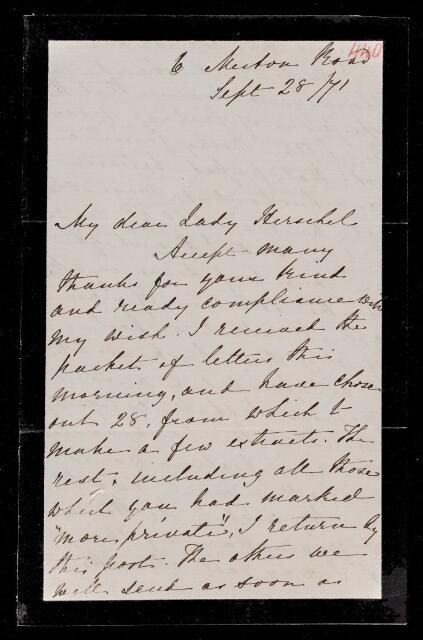 440
6 Merton Road
Sept 28/71
My dear Lady Herschel
Accept many
thanks for your kind
and ready compliance with
my wish. I received the
packet of letters this
morning, and have chosen
out 28, from which to
make a few extracts. The
rest, including all those
which you had marked
"more private", I return by
this post. The others we
will send as soon as